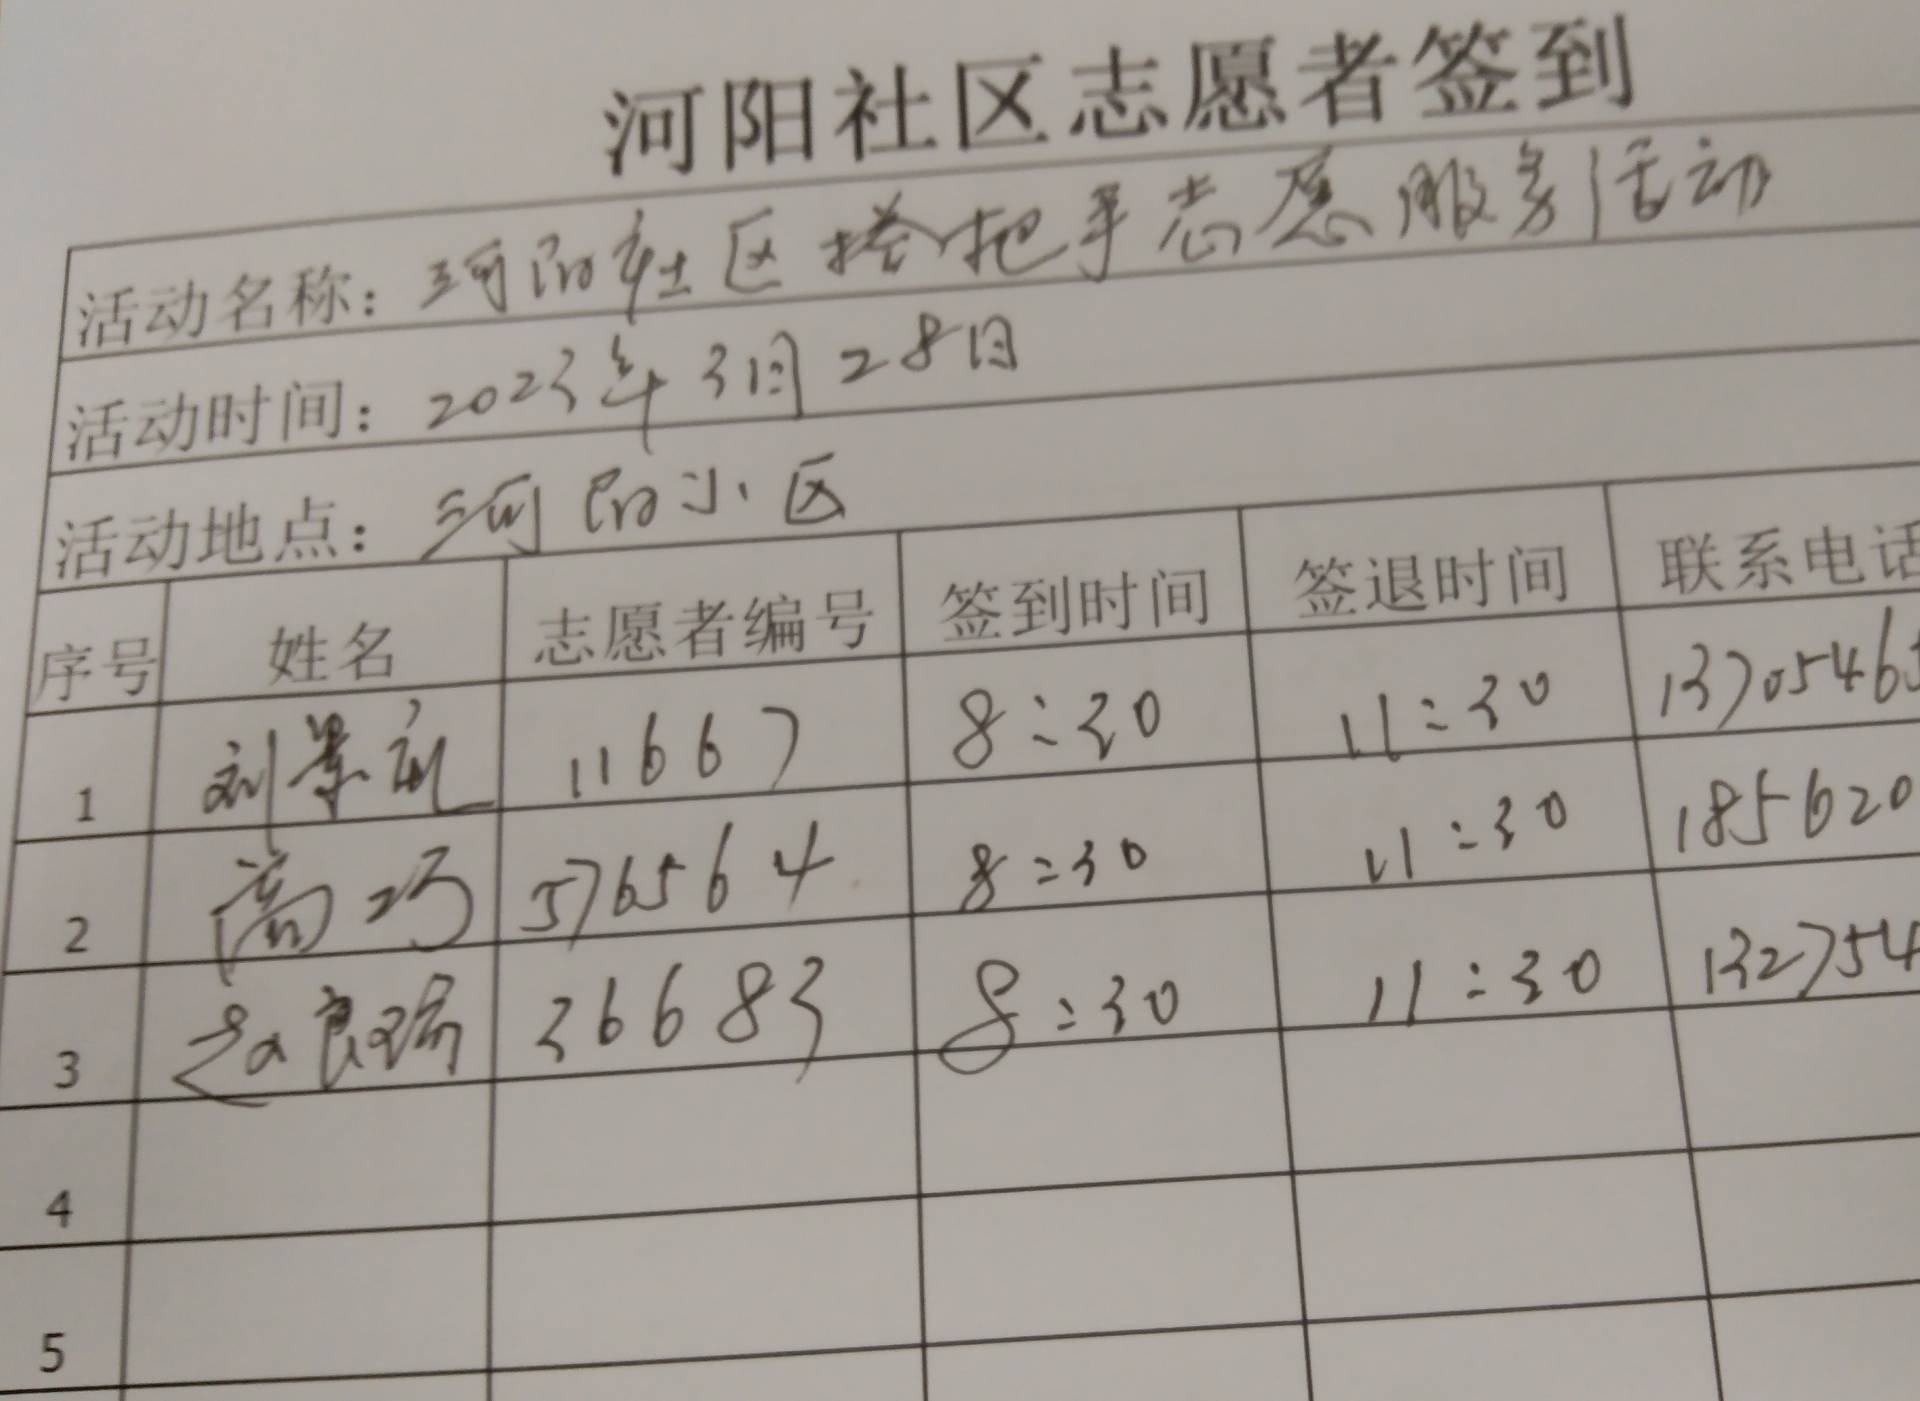 河阳社区志愿者签到
活动名称：河阳社区搭把手志愿服务活动
活动时间：2023年3月28日
活动地点：河阳小区
序号 姓名 志愿者编号 签到时间 签退时间 联系电话
1 刘景 11667 8:30 11:30 1370546
2 高巧 576564 8:30 11:30 185620
3 赵良瑞 36683 8:30 11:30 132754
4
5